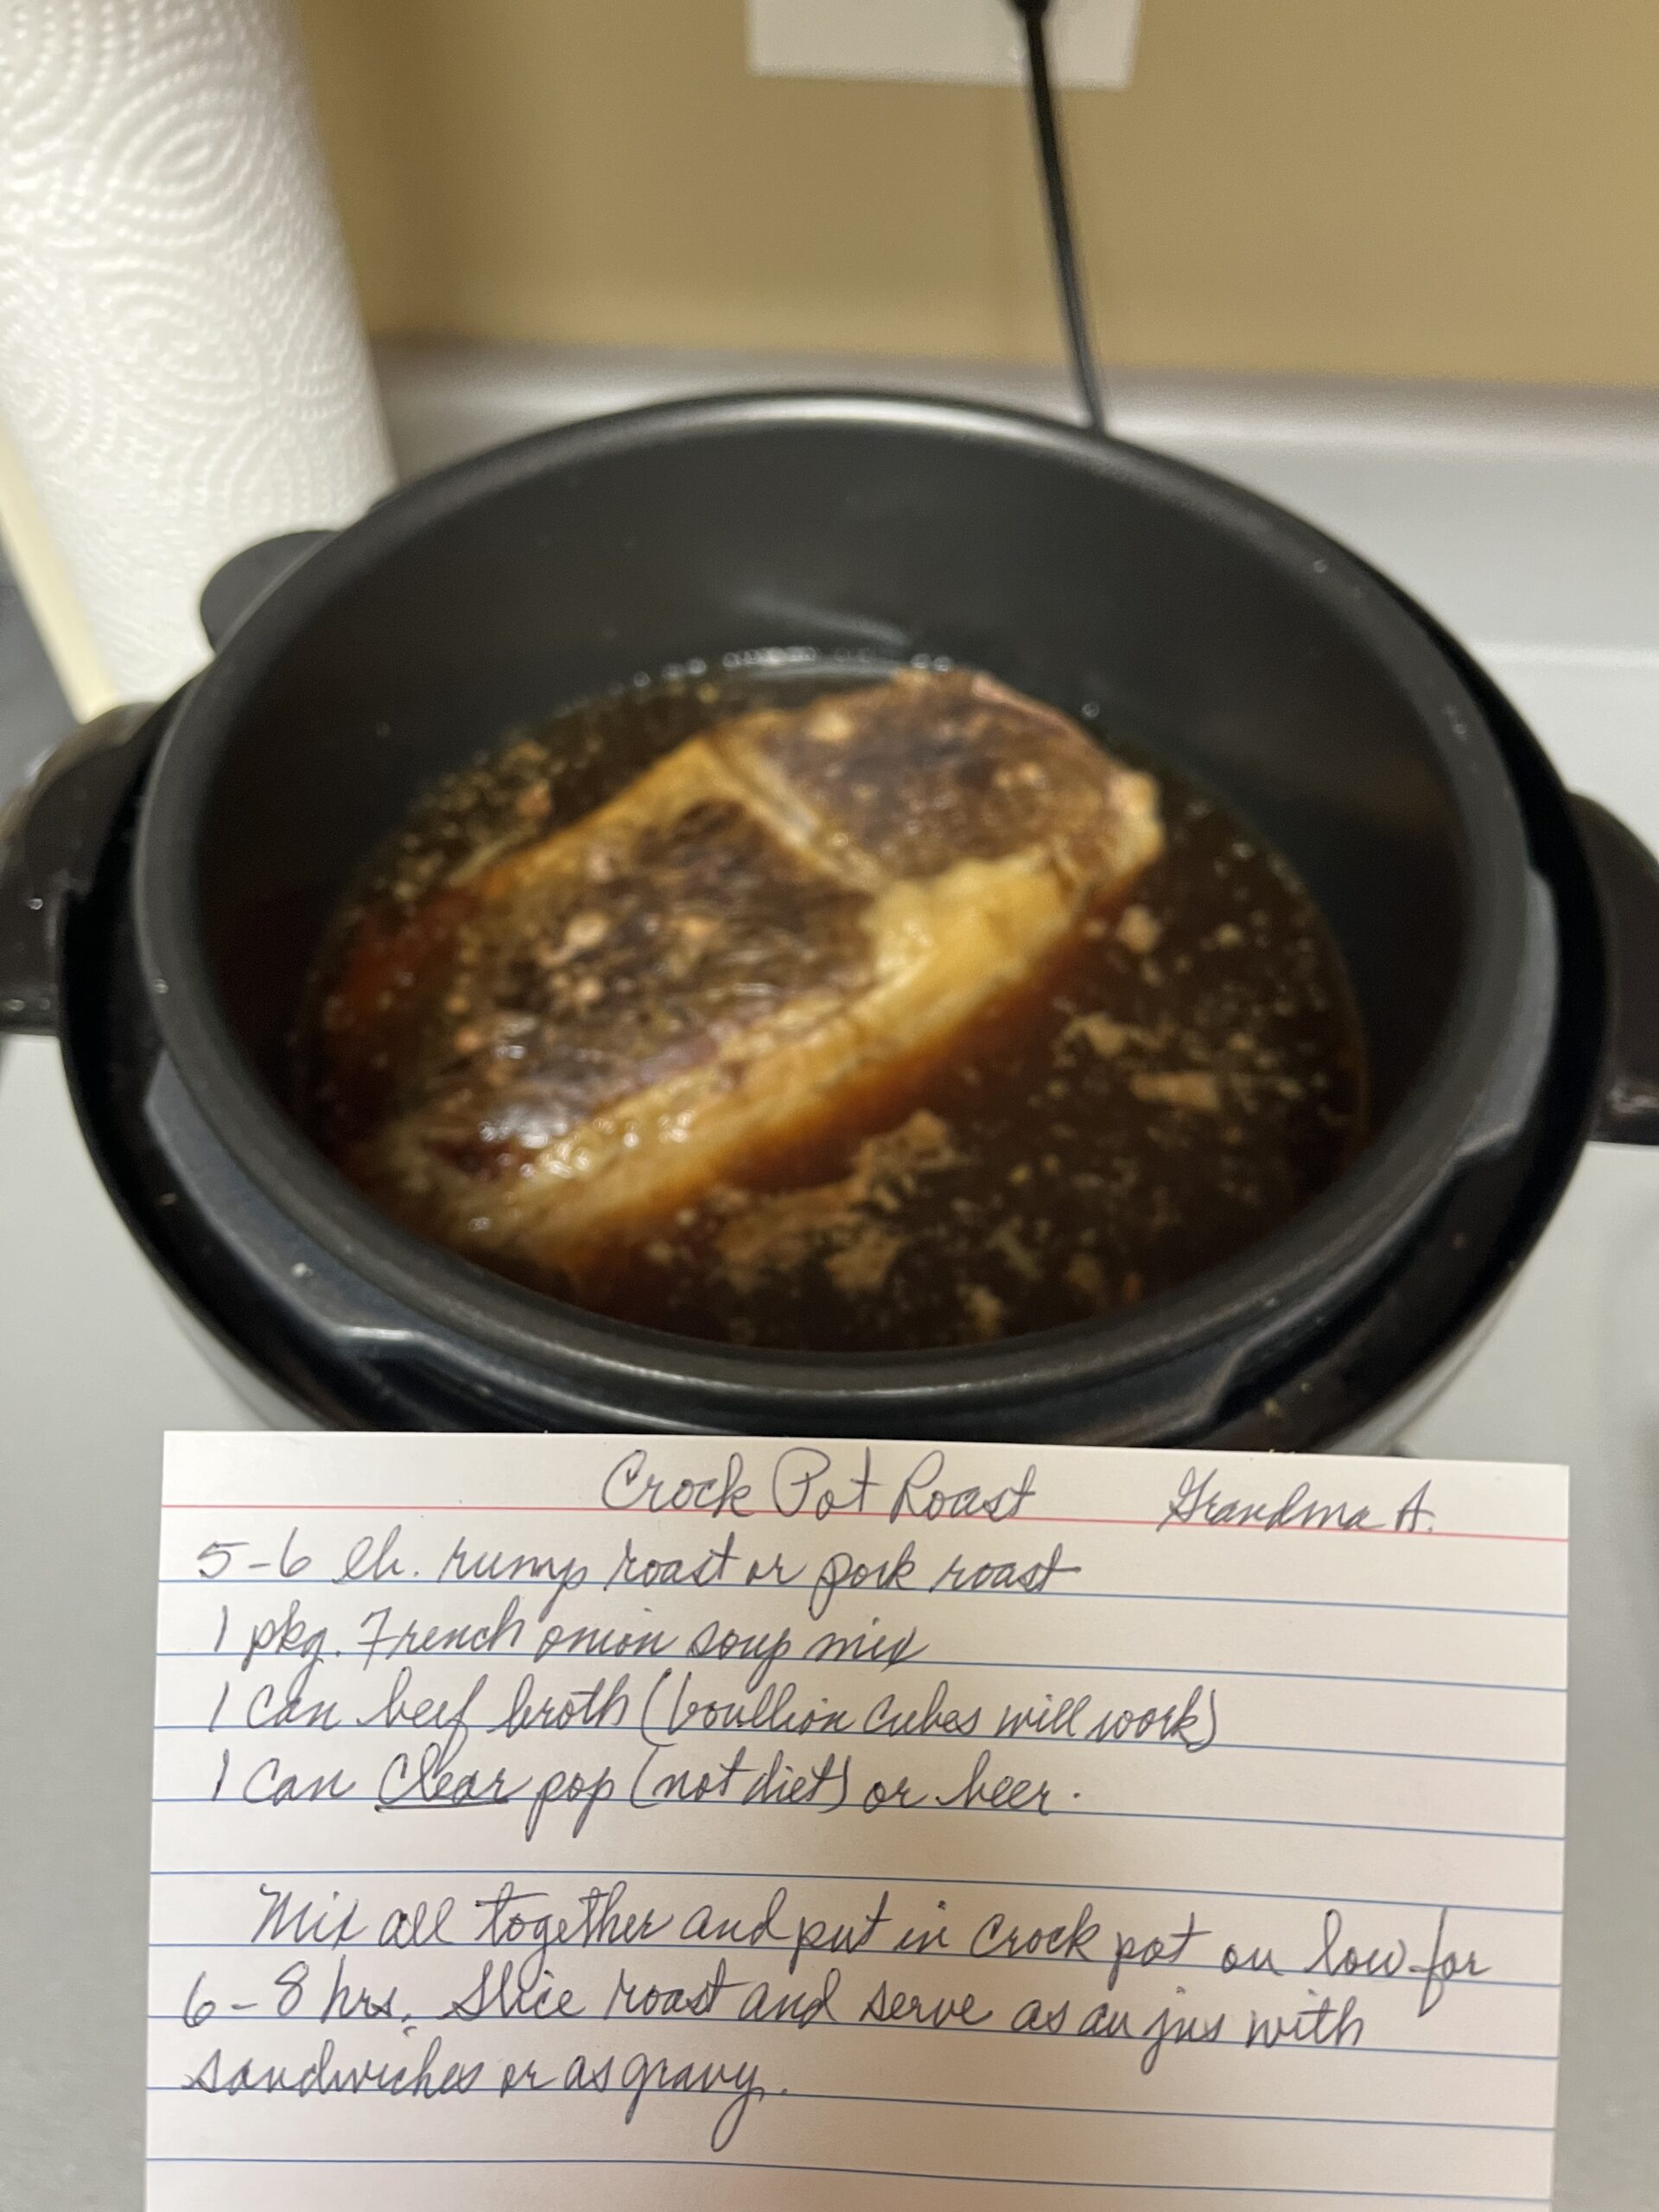 Crock Pot Roast Grandma A.
5-6 lb. rump roast or pork roast
1 pkg. French onion soup mix
1 can beef broth (boullion cubes will work)
1 can clear pop (not diet) or beer.
Mix all together and put in crock pot on low for
6-8 hrs. Slice roast and serve as au jus with
sandwiches or as gravy.